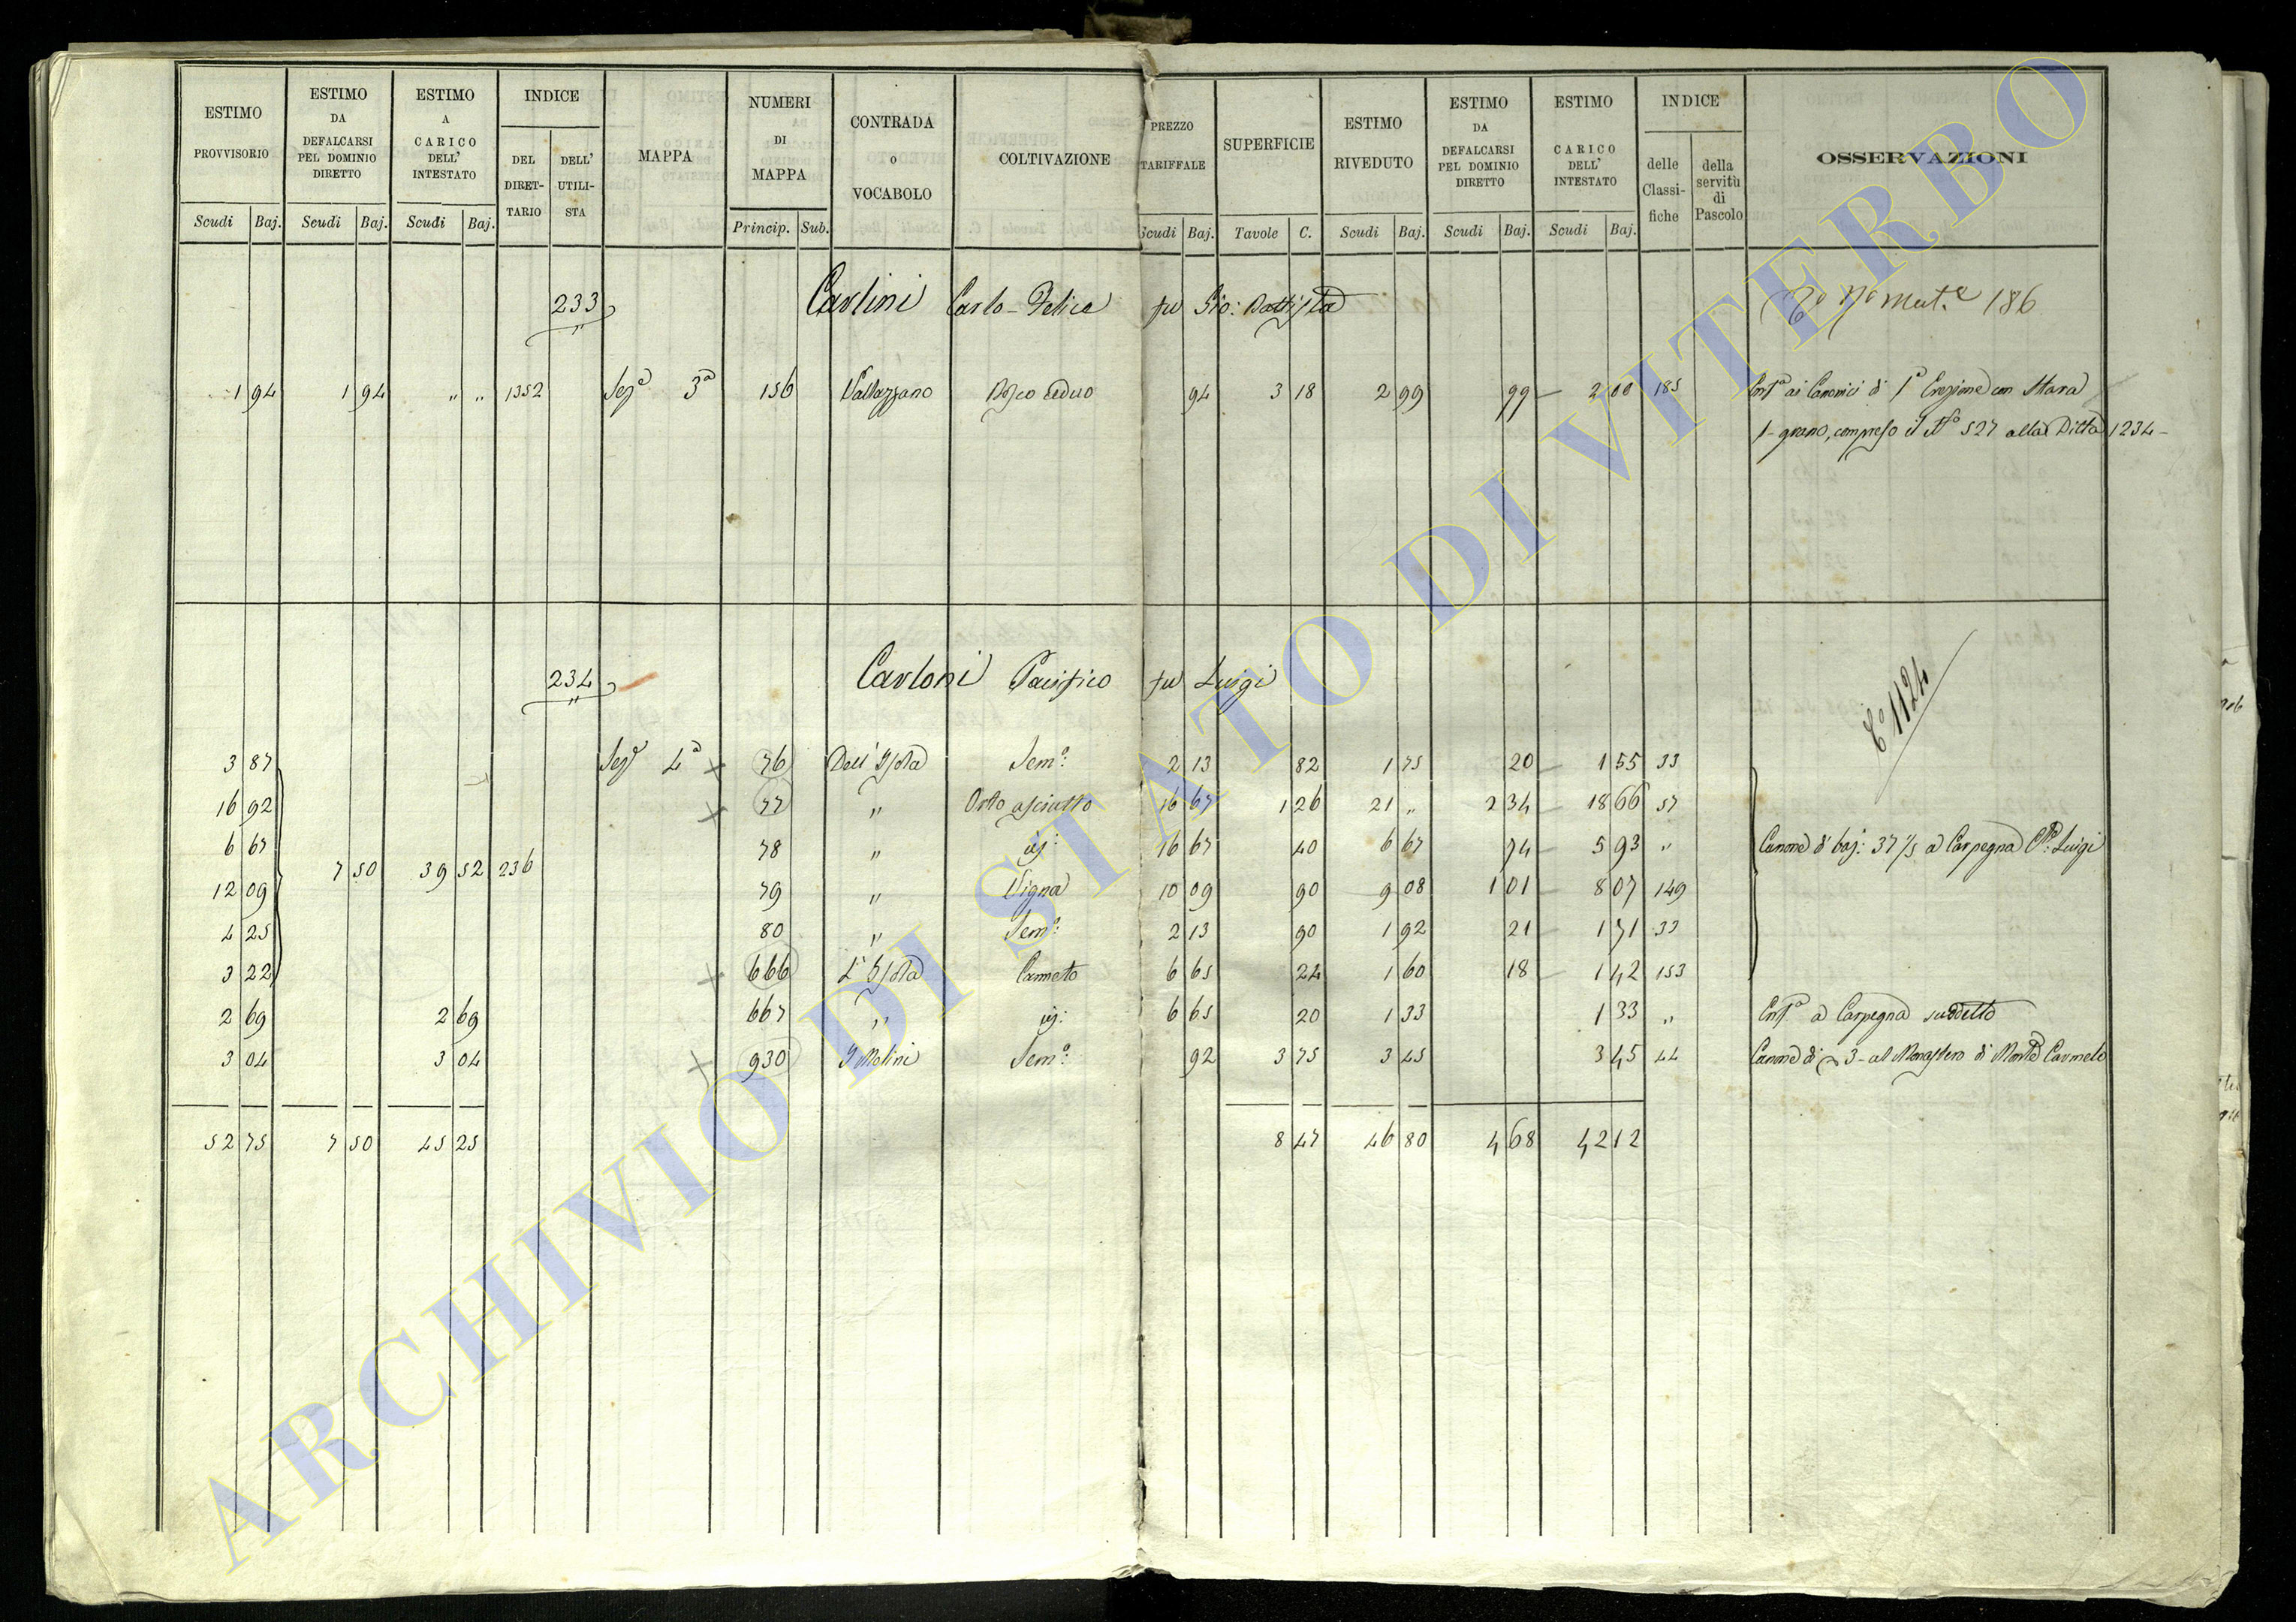 ESTIMO PROVVISORIO
ESTIMO DA DEFALCARSI PEL DOMINIO DIRETTO
ESTIMO A CARICO DELL' INTESTATO
INDICE
DEL DIRET-TARIO
DELL' UTILI-STA
MAPPA
NUMERI DI MAPPA
CONTRADA O VOCABOLO
COLTIVAZIONE
PREZZO TARIFFALE
SUPERFICIE
ESTIMO RIVEDUTO
ESTIMO DA DEFALCARSI PEL DOMINIO DIRETTO
ESTIMO A CARICO DELL' INTESTATO
INDICE
delle Classi-fiche
della servitù di Pascolo
OSSERVAZIONI
Scudi Baj. Scudi Baj. Scudi Baj. Princip. Sub. Scudi Baj. Tavole C. Scudi Baj. Scudi Baj. Scudi Baj.
233 Carlini Carlo-Felice fu Gio: Battista 186
1 94 1 94 " " 1352 Sez.ª 3ª 156 Vallazzano Bosco ceduo 94 3 18 2 99 99 2 00 185 Enf.ª ai Canonici di 1ª Erezione con Mara
1 grano, compreso il N.º 527 alla Ditta 1234
234 Carloni Pacifico fu Luigi
Cº 1124
3 87 Sezª 4ª 76 Dell'Isola Sem.º 2 13 82 1 75 20 1 55 33
16 92 77 " Orto asciutto 16 67 1 26 21 " 2 34 18 66 57
6 67 78 " id: 16 67 40 6 67 74 5 93 " Canone di baj: 37 1/5 a Carpegna Luigi
7 50 39 52 236
12 09 79 " Vigna 10 09 90 9 08 1 01 8 07 149
4 25 80 " Sem.º 2 13 90 1 92 21 1 71 33
3 22 666 L'Isola Canneto 6 65 24 1 60 18 1 42 153
2 69 2 69 667 " id: 6 65 20 1 33 1 33 " Enf.ª a Carpegna suddetto
3 04 3 04 930 I Molini Sem.º 92 3 75 3 45 3 45 44 Canone di 3 al Monastero di Monte Carmelo
52 75 7 50 45 25 8 47 46 80 4 68 42 12
ARCHIVIO DI STATO DI VITERBO